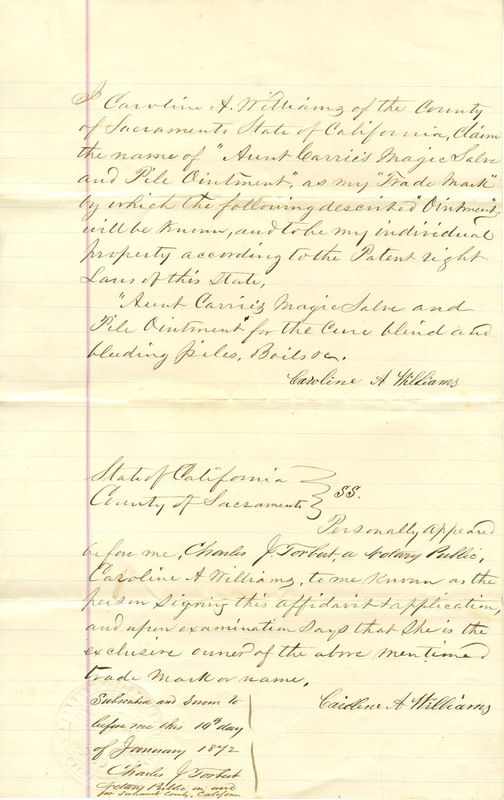 I Caroline A. Williams of the County
of Sacramento State of California, Claim
the name of "Aunt Carrie's Magic Salve
and Pile Ointment", as my "Trade Mark"
by which the following described "Ointment",
will be Known, and to be my individual
property according to the Patent right
Laws of this State,
"Aunt Carries Magic Salve and
Pile Ointment" for the Cure blind and
bleeding piles, Boils &c.
Caroline A Williams
State of California
County of Sacramento } SS.
Personally appeared
before me, Charles J. Torbert, a Notary Public,
Caroline A Williams, to me Known as the
person signing this affidavit & application,
and upon examination says that She is the
exclusive owner of the above mentioned
trade mark or name,
Caroline A Williams
Subscribed and Sworn to
before me this 10th day
of January 1872
Charles J Torbert
Notary Public in and
for Sacramento County, California